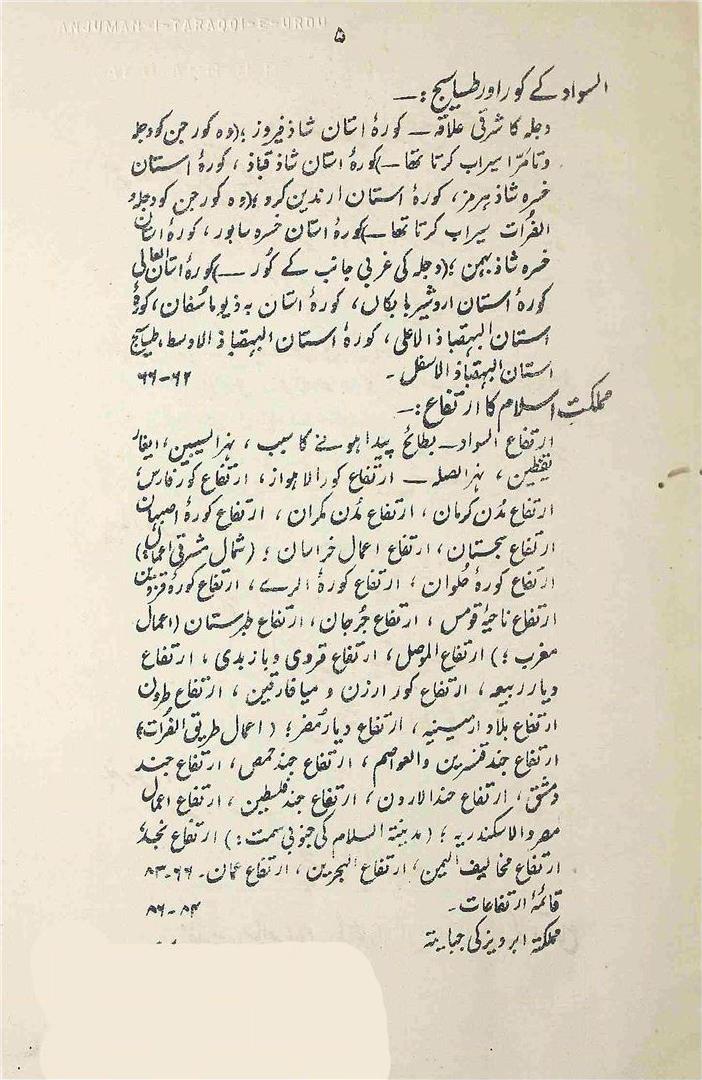 ANJUMAN-I-TARAQQI-E-URDU
۵
السواد کے کور اور طساسیج :ـ
دجلہ کا شرقی علاقہ ـ کورۂ استان شاذ فیروز ؛ (وہ کور جن کو دجلہ
و تامرّا سیراب کرتا تھا ـ) کورۂ استان شاذ قباذ ، کورۂ استان
خسرہ شاذ ہرمز، کورۂ استان ارندین کرد ؛ (وہ کور جن کو دجلہ و
الفرُات سیراب کرتا تھا ـ) کورۂ استان خسرہ سابور ، کورۂ استان
خسرہ شاذ بہمن ؛ (دجلہ کی غربی جانب کے کُور ـ) کورۂ استان العالی
کورۂ استان اردشیر بابکاں، کورۂ استان بہ ذیوماسُفان، کورۂ
استان البہقباذ الاعلی ، کورۂ استان البہقباذ الاوسط، طساسیج
استان البہقباذ الاسفل ـ ۶۲-۶۶
مملکتِ اسلام کا ارتفاع :ـ
ارتفاع السواد ـ بطائح پیدا ہونے کا سبب ، نہر السیبین ، ایغار
یقطین ، نہر الصلہ ـ ارتفاع کور الاہواز، ارتفاع کور فارس،
ارتفاع مُدن کرمان ، ارتفاع مُدن مکران ، ارتفاع کورۂ اصبہان
ارتفاع سجستان ، ارتفاع اعمال خراسان ؛ (شمال مشرقی اعمال؛)
ارتفاع کورۂ حُلوان ، ارتفاع کورۂ الرے ، ارتفاع کورۂ قزوین
ارتفاع ناحیۂ قومس ، ارتفاع جُرجان ، ارتفاع طبرستان (اعمال
مغرب ؛) ارتفاع الموصل ، ارتفاع قردی و بازبدی ، ارتفاع
دیار ربیعہ ، ارتفاع کور ارزن و میافارقین ، ارتفاع طرون
ارتفاع بلاد ارمینیہ ، ارتفاع دیار مُضر ؛ (اعمال طریق الفرُات؛)
ارتفاع جند قنسرین والعواصم ، ارتفاع جند حمص ، ارتفاع جند
دمشق ، ارتفاع جند الاردن ، ارتفاع جند فلسطین ، ارتفاع اعمال
مصر و الاسکندریہ ؛ (مدینۃ السلام کی جنوبی سمت :) ارتفاع نجد،
ارتفاع مخالیف الیمن ، ارتفاع البحرین ، ارتفاع عمان ـ ۶۶-۸۳
قائمۂ ارتفاعات ـ ۸۴-۸۶
مملکتِ ابرویز کی جبایتہ